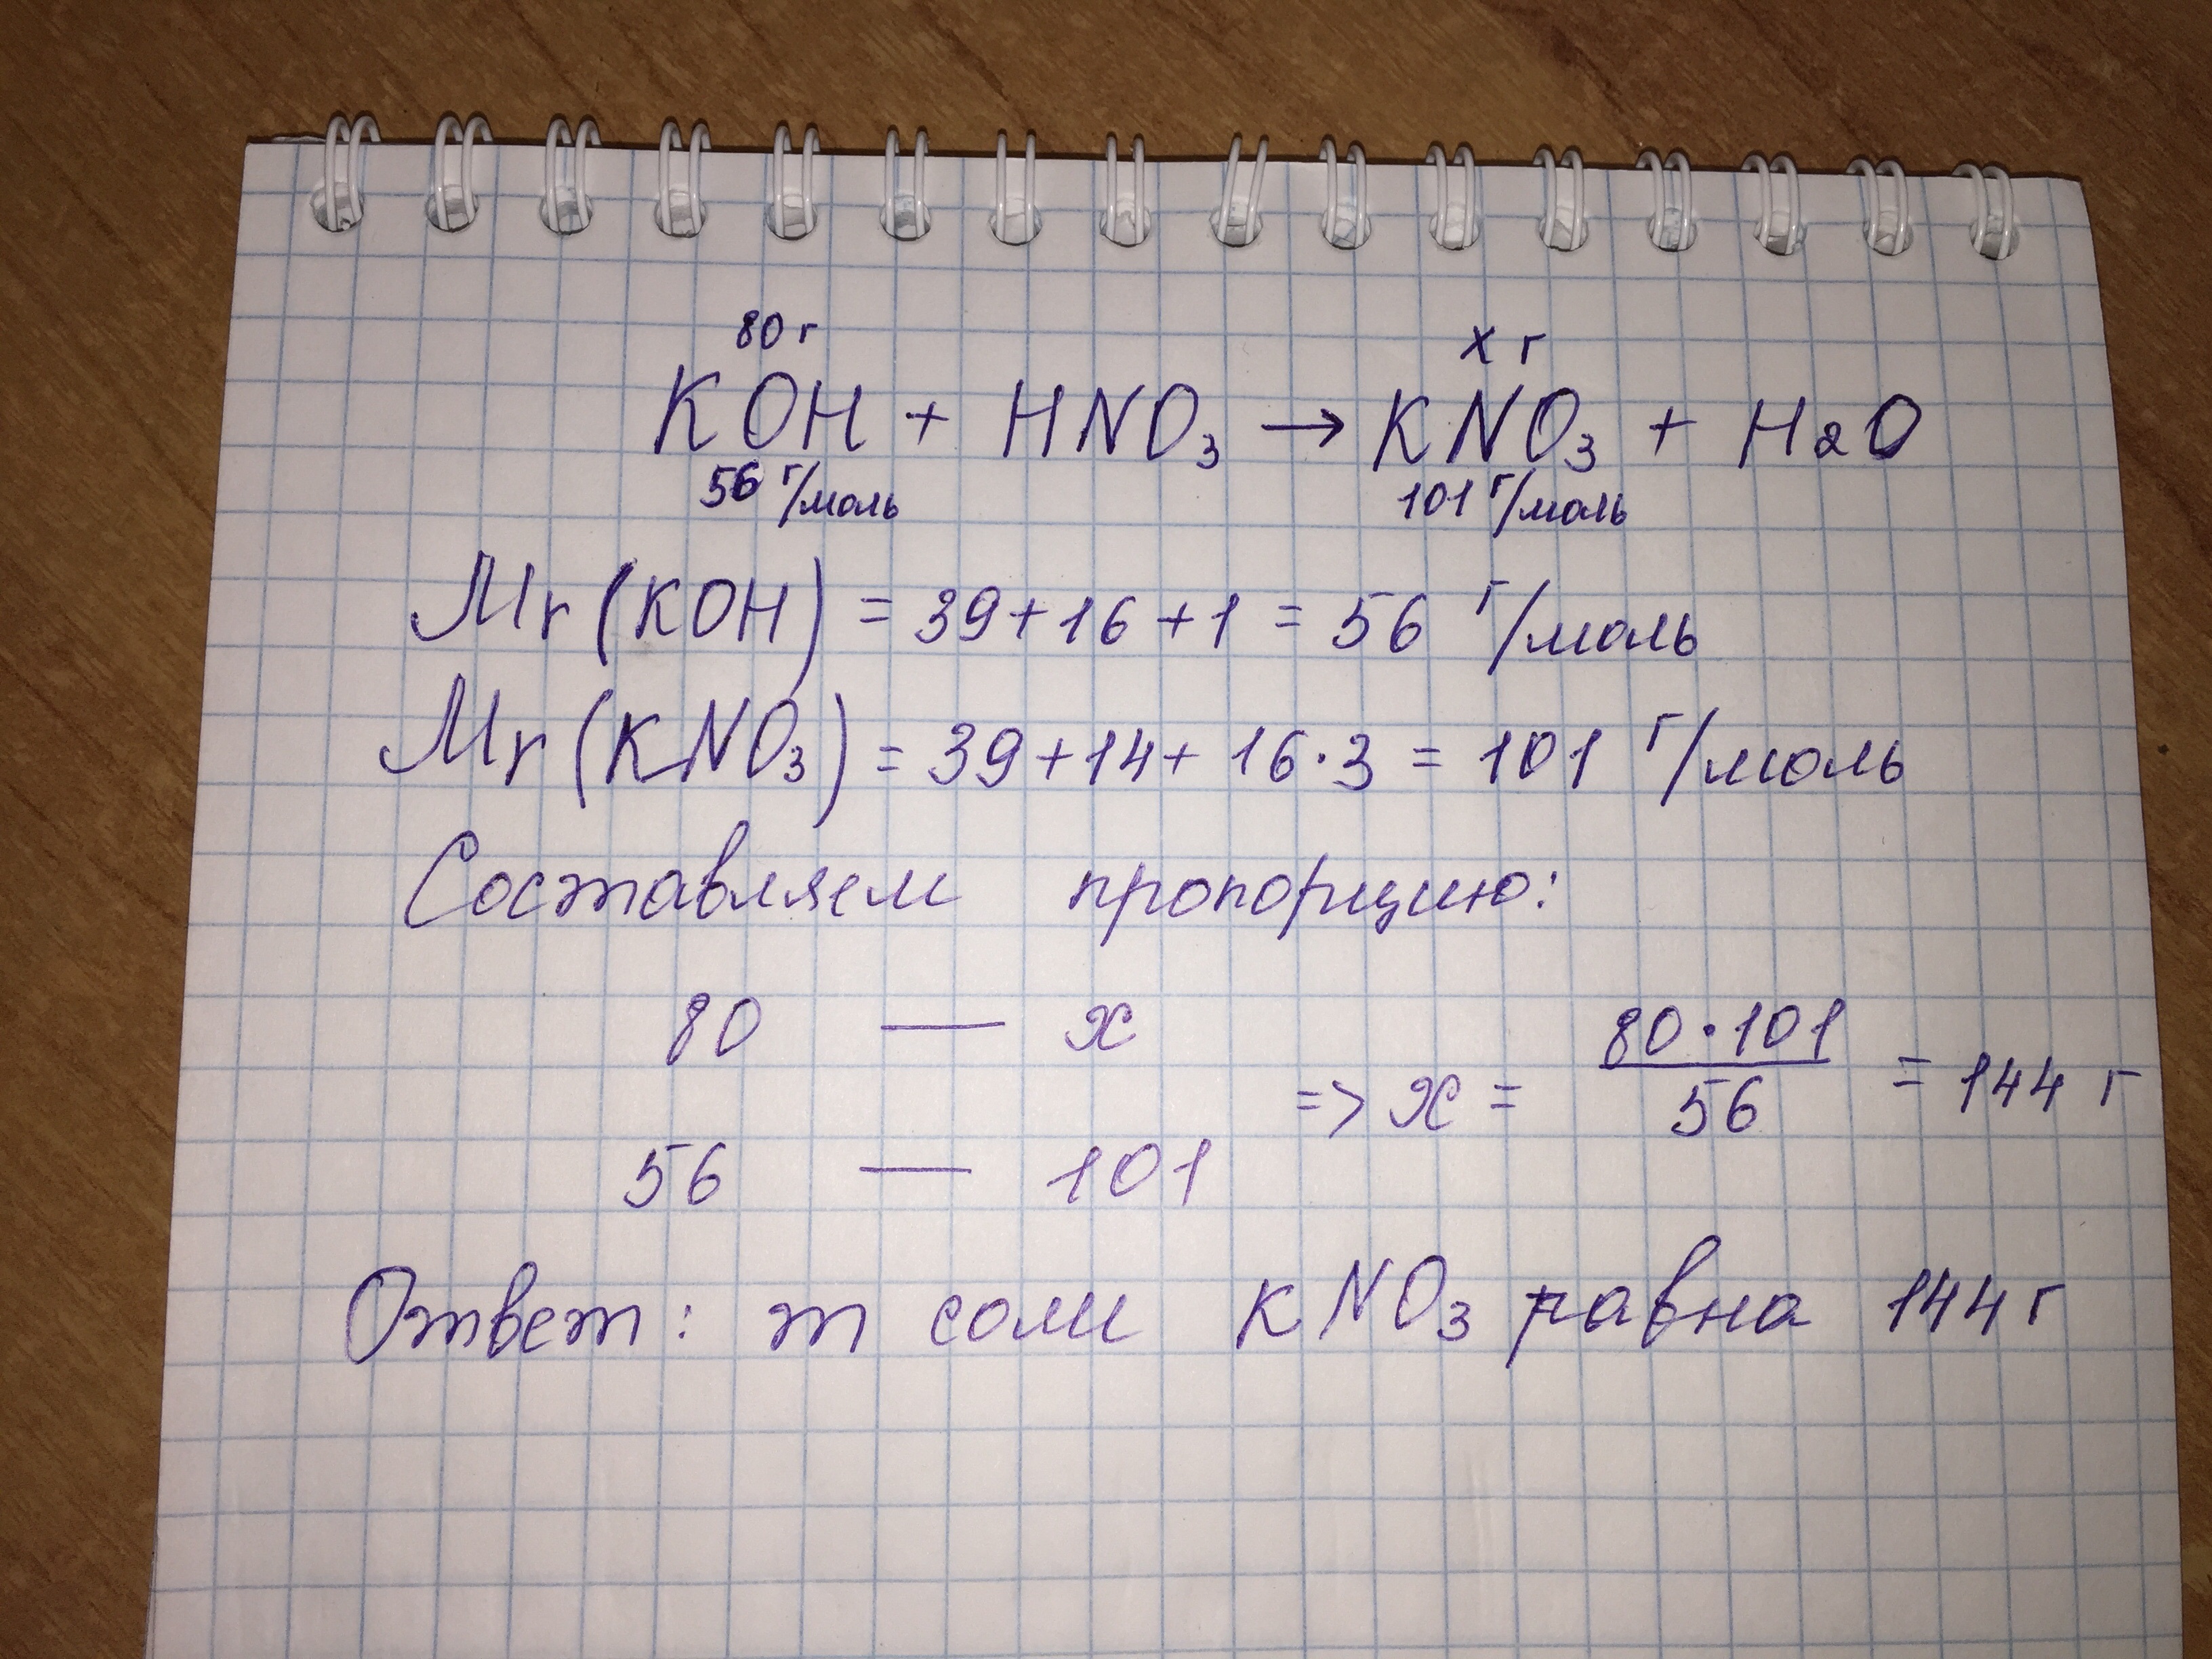 80 г х г
KOH + HNO₃ → KNO₃ + H₂O
56 г/моль 101 г/моль
Mr (KOH) = 39+16+1 = 56 г/моль
Mr (KNO₃) = 39+14+ 16·3 = 101 г/моль
Составляем пропорцию:
80 — x
=> x = 80·101/56 = 144 г
56 — 101
Ответ: m соли KNO₃ равна 144 г